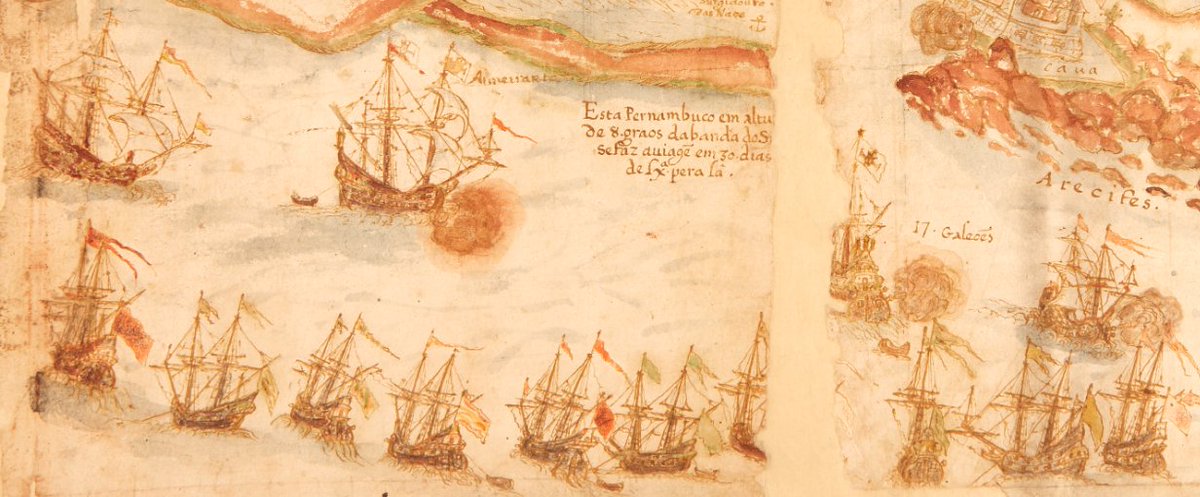 das Naos
Almeiranta
Esta Pernambuco em altu
de 8. graos dabanda do S
se faz a uiagẽ em 30. dias
de Lx.ª pera lá.
caua
Arecifes.
17. Galeoẽs